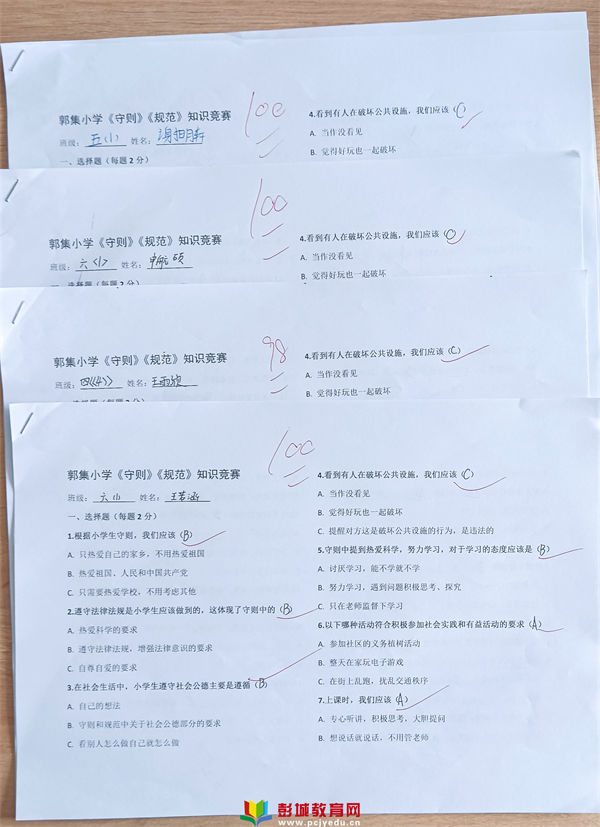 郭集小学《守则》《规范》知识竞赛
班级：五(1) 姓名：
一、选择题（每题2分）
100
4.看到有人在破坏公共设施，我们应该（C）
A. 当作没看见
B. 觉得好玩也一起破坏
郭集小学《守则》《规范》知识竞赛
班级：六(1) 姓名：申航硕
一、选择题（每题2分）
100
4.看到有人在破坏公共设施，我们应该（C）
A. 当作没看见
B. 觉得好玩也一起破坏
郭集小学《守则》《规范》知识竞赛
班级：四(4) 姓名：王雨
98
4.看到有人在破坏公共设施，我们应该（C）
A. 当作没看见
B. 觉得好玩也一起破坏
郭集小学《守则》《规范》知识竞赛
班级：六(1) 姓名：王茗涵
100
一、选择题（每题2分）
1.根据小学生守则，我们应该（B）
A. 只热爱自己的家乡，不用热爱祖国
B. 热爱祖国、人民和中国共产党
C. 只需要热爱学校，不用考虑其他
2.遵守法律法规是小学生应该做到的，这体现了守则中的（B）
A. 热爱科学的要求
B. 遵守法律法规，增强法律意识的要求
C. 自尊自爱的要求
3.在社会生活中，小学生遵守社会公德主要是遵循（B）
A. 自己的想法
B. 守则和规范中关于社会公德部分的要求
C. 看别人怎么做自己就怎么做
4.看到有人在破坏公共设施，我们应该（C）
A. 当作没看见
B. 觉得好玩也一起破坏
C. 提醒对方这是破坏公共设施的行为，是违法的
5.守则中提到热爱科学，努力学习，对于学习的态度应该是（B）
A. 讨厌学习，能不学就不学
B. 努力学习，遇到问题积极思考、探究
C. 只在老师监督下学习
6.以下哪种活动符合积极参加社会实践和有益活动的要求（A）
A. 参加社区的义务植树活动
B. 整天在家玩电子游戏
C. 在街上乱跑，扰乱交通秩序
7.上课时，我们应该（A）
A. 专心听讲，积极思考，大胆提问
B. 想说话就说话，不用管老师
彭城教育网
www.pcjyedu.cn